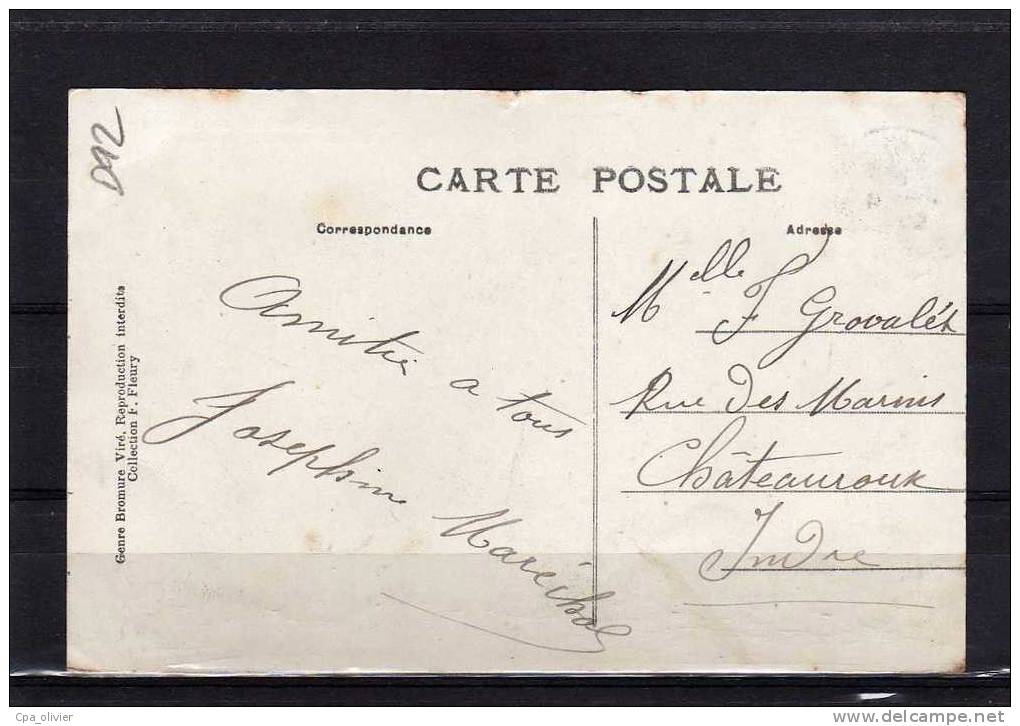 D92
CARTE POSTALE
Correspondance
Adresse
Amitié a tous
Joséphine Maréchal
Melle F Grovalét
Rue Des Marins
Châteauroux
Indre
Genre Bromure Viré, Reproduction interdite
Collection F. Fleury
Cpa_olivier
www.delcampe.net